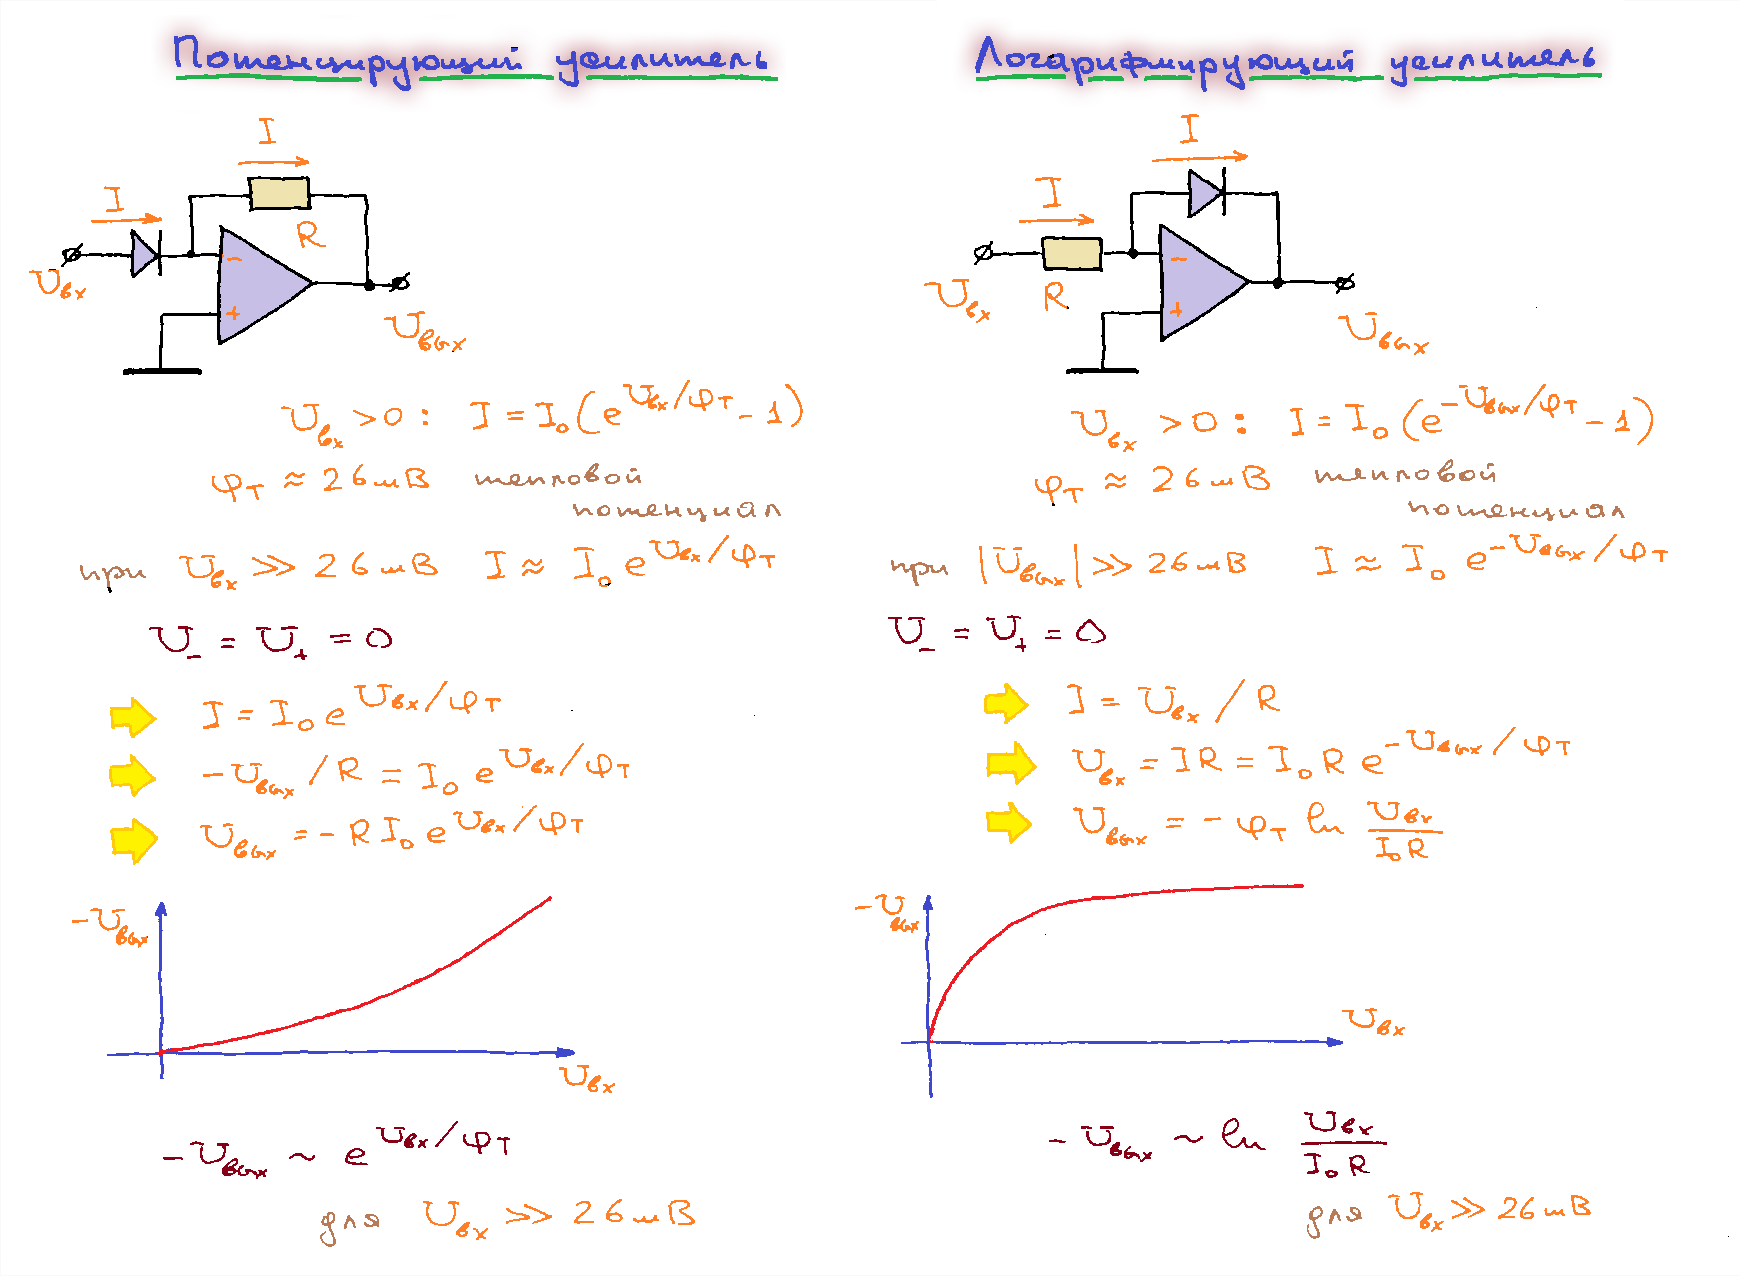 Потенцирующий усилитель
I
I
R
−
+
Uвх
Uвых
Uвх > 0 : I = I₀(e^(Uвх/φт) - 1)
φт ≈ 26мВ тепловой
потенциал
при Uвх >> 26мВ I ≈ I₀ e^(Uвх/φт)
U₋ = U₊ = 0
I = I₀ e^(Uвх/φт)
-Uвых / R = I₀ e^(Uвх/φт)
Uвых = - R I₀ e^(Uвх/φт)
-Uвых
Uвх
-Uвых ~ e^(Uвх/φт)
для Uвх >> 26мВ
Логарифмирующий усилитель
I
I
R
−
+
Uвх
Uвых
Uвх > 0 : I = I₀(e^(-Uвых/φт) - 1)
φт ≈ 26мВ тепловой
потенциал
при |Uвых| >> 26мВ I ≈ I₀ e^(-Uвых/φт)
U₋ = U₊ = 0
I = Uвх / R
Uвх = IR = I₀ R e^(-Uвых/φт)
Uвых = - φт ln Uвх/(I₀R)
-Uвых
Uвх
-Uвых ~ ln Uвх/(I₀R)
для Uвх >> 26мВ